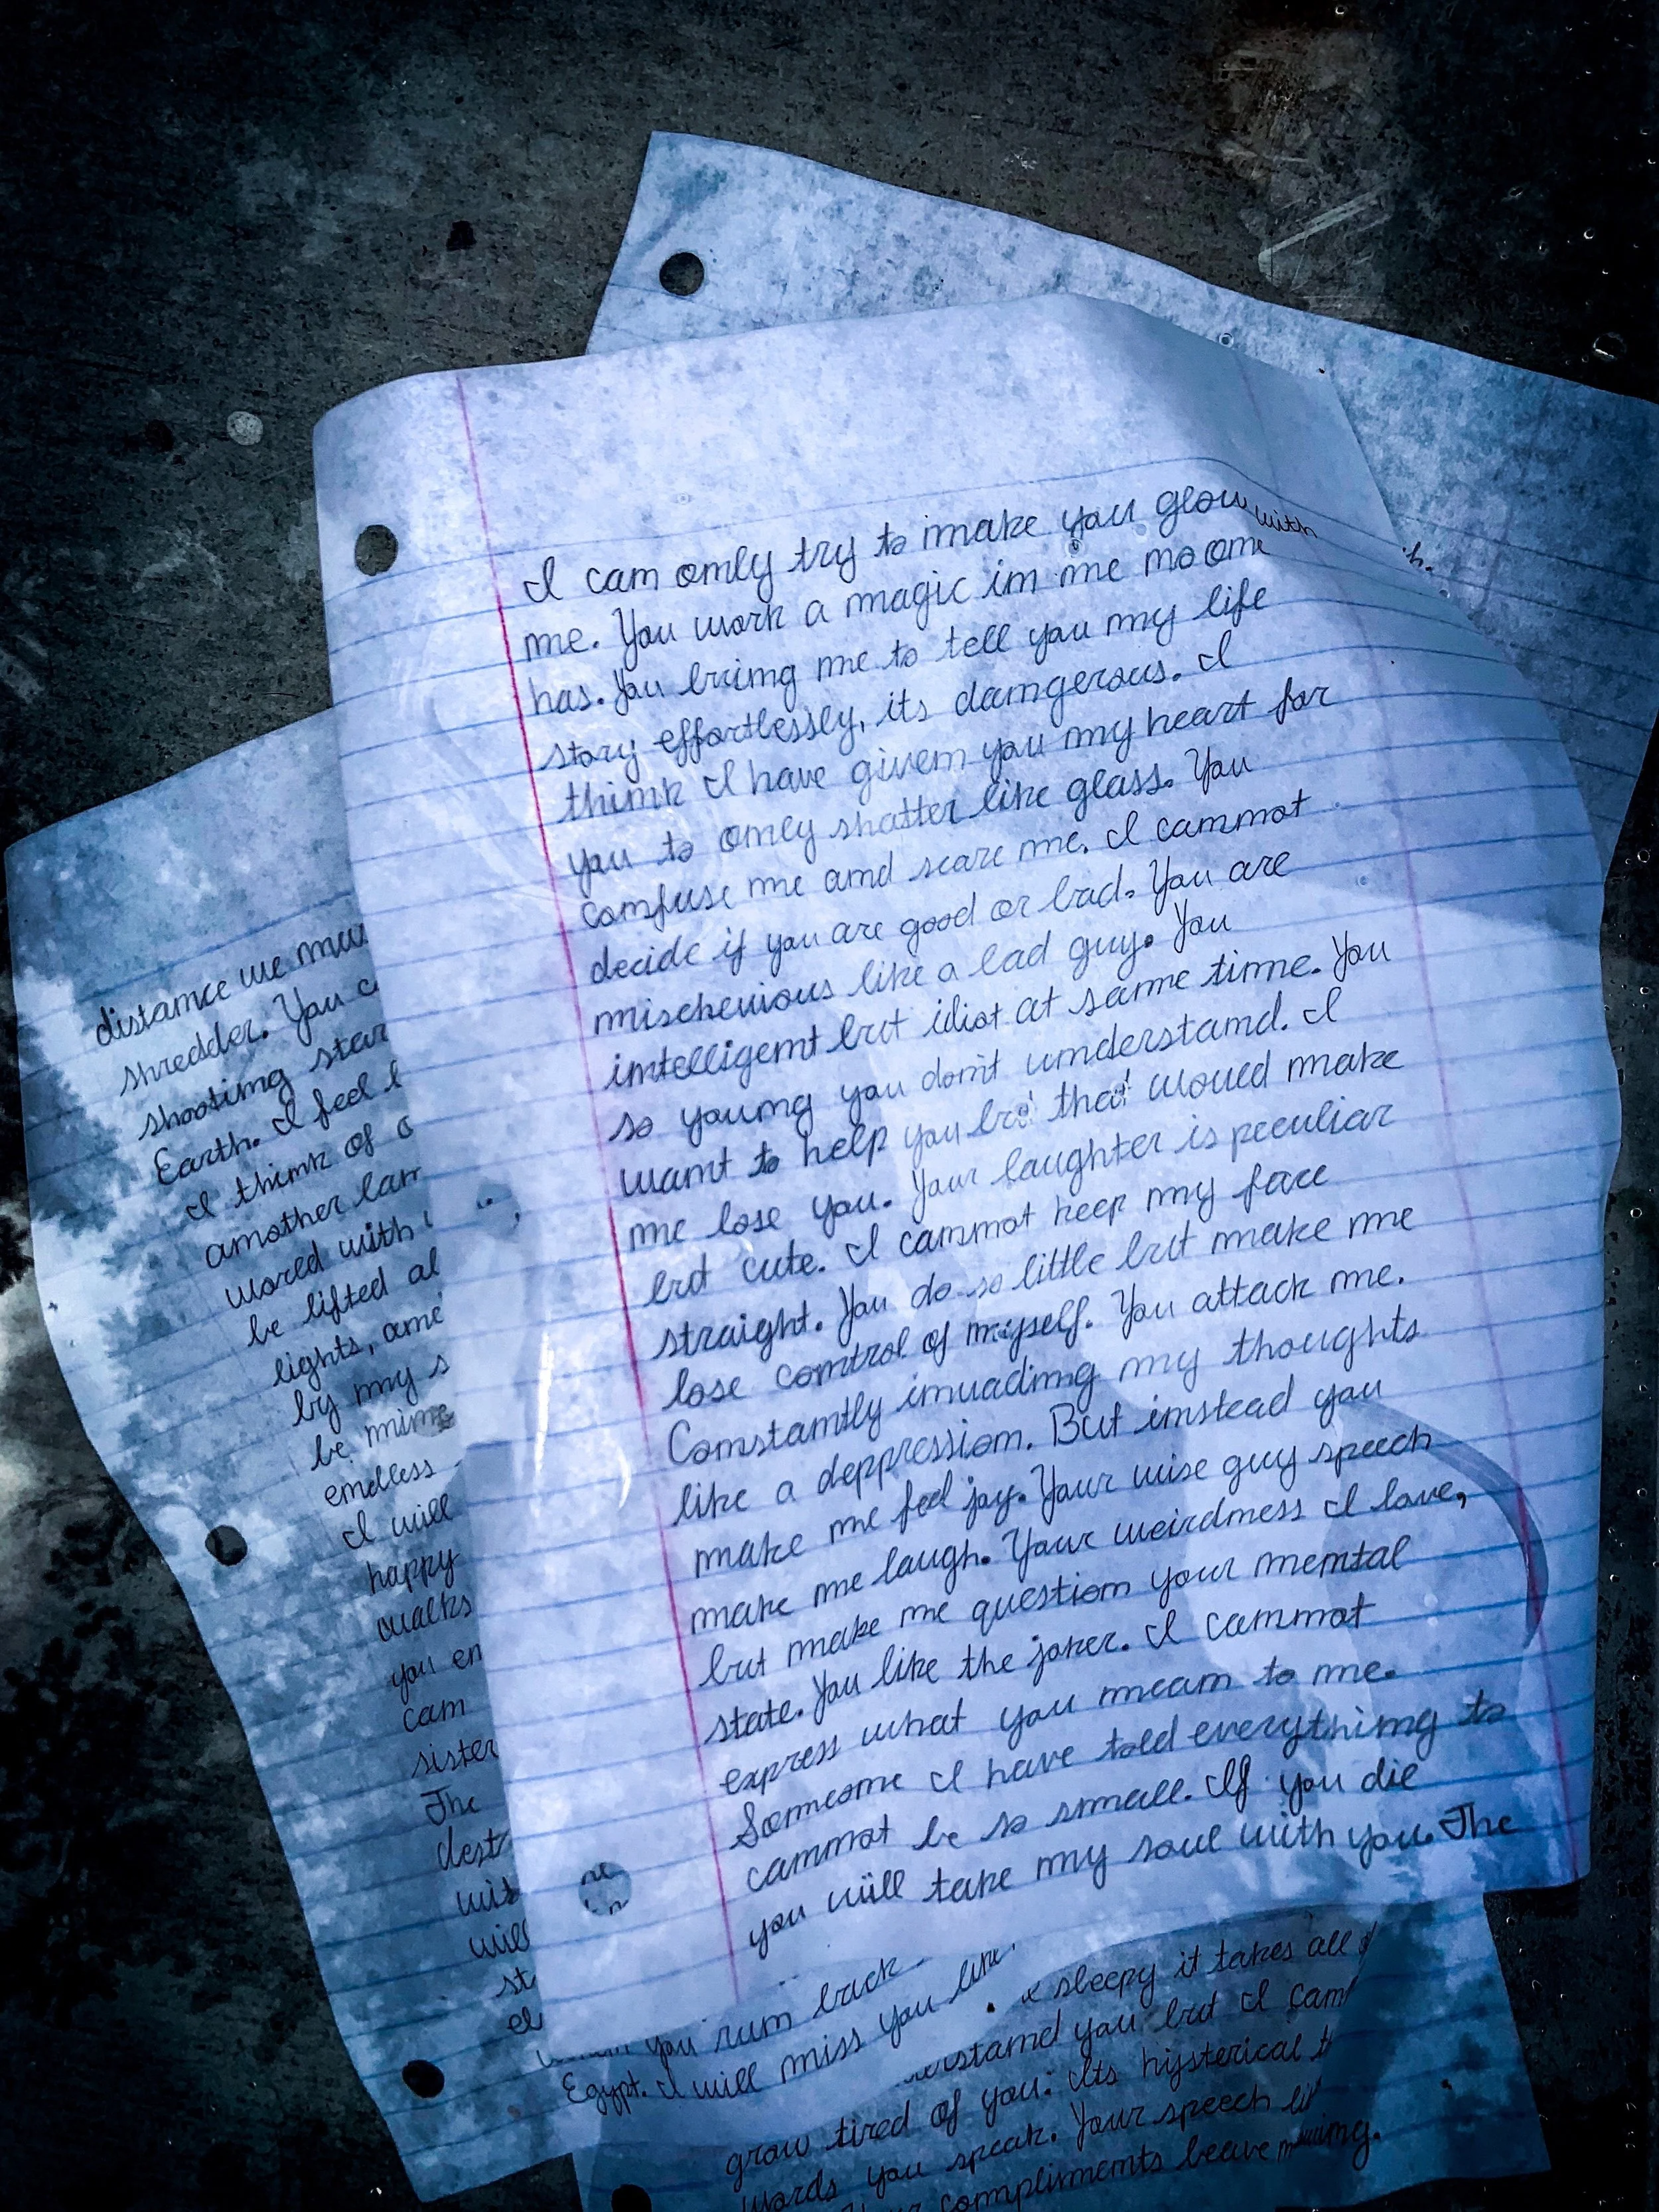 I can only try to make you glow with
me. You work a magic in me no one
has. You bring me to tell you my life
story effortlessly, its dangerous. I
think I have given you my heart for
you to only shatter like glass. You
confuse me and scare me. I cannot
decide if you are good or bad. You are
mischevious like a bad guy. You
intelligent but idiot at same time. You
so young you don't understand. I
want to help you but that would make
me lose you. Your laughter is peculiar
but cute. I cannot keep my face
straight. You do so little but make me
lose control of myself. You attack me.
Constantly invading my thoughts
like a deppression. But instead you
make me feel joy. Your wise guy speech
make me laugh. Your weirdness I love,
but make me question your mental
state. You like the joker. I cannot
express what you mean to me.
Someone I have told everything to
cannot be so small. If you die
you will take my soul with you. The
distance we
shredder. You
shooting star
Earth. I feel
I think of
another
world with
be lifted
lights,
by my
be
endless
I will
happy
walks
you
can
sister
The
will
you run back
Egypt. I will miss you
sleepy it takes all
you but I
grow tired of you. Its hysterical
words you speak. Your speech
compliments leave